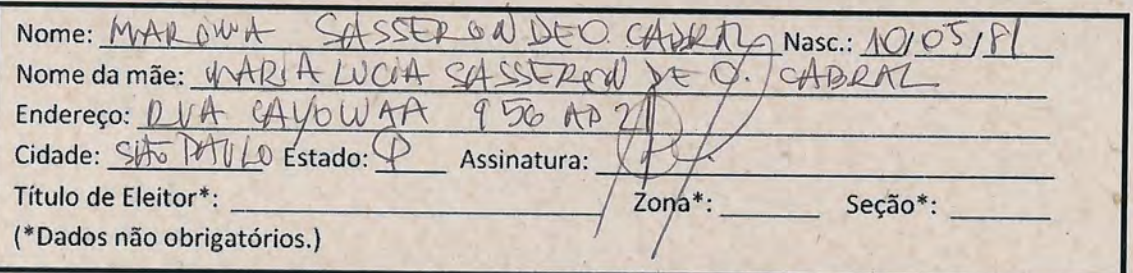 Nome: MARINA SASSERON DE O. CABRAL Nasc.: 10/05/81
Nome da mãe: MARIA LUCIA SASSERON DE O. CABRAL
Endereço: RUA CAYOWAA 956 AP
Cidade: SÃO PAULO Estado: SP Assinatura:
Título de Eleitor*: Zona*: Seção*:
(*Dados não obrigatórios.)